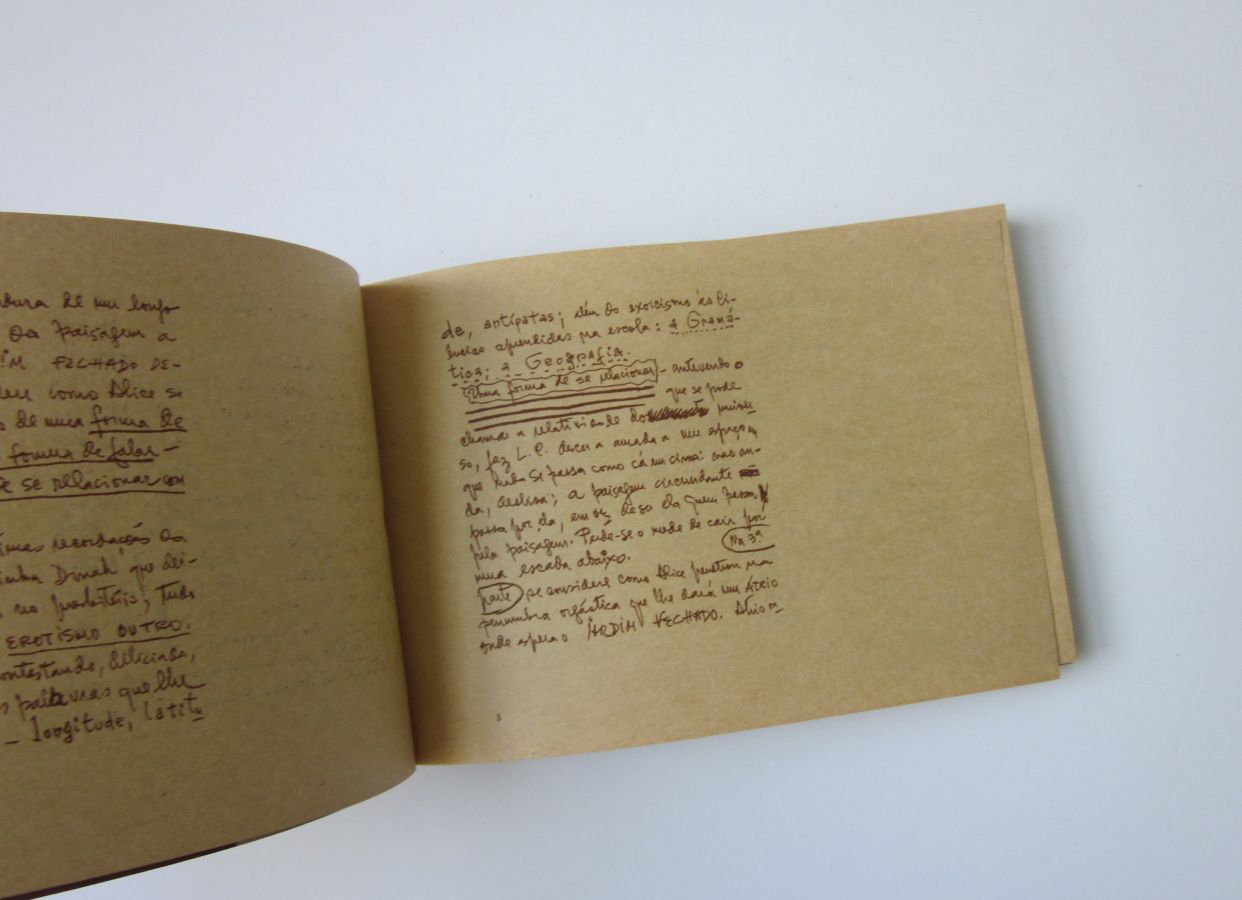 de um longo
da paisagem a
FECHADO DE-
como Alice se
de uma forma de
forma de falar —
se relacionar com
recordações da
Dinah que dei-
no presbitério; tudo
EROTISMO OUTRO.
contestando, deliciada,
palavras que lhe
— longitude, latitu
de, antípatas; além do exorcismo às Ci-
ências aprendidas na escola: a Gramá-
tica; a Geografia.
Uma forma de se relacionar — antevendo o
que se pode
chamar a relatividade do
so, faz L.C. descer a a um
que tudo se passa como cá em cima: não an-
da, desliza; a paisagem circundante
passa por ela, em vez de ser ela quem passa
pela paisagem. Perde-se o medo de cair por
uma escada abaixo.
Na 3ª
parte se considere como Alice penetra na
penumbra orgástica que lhe dará um ÁTRIO
onde espera o JARDIM FECHADO.
8